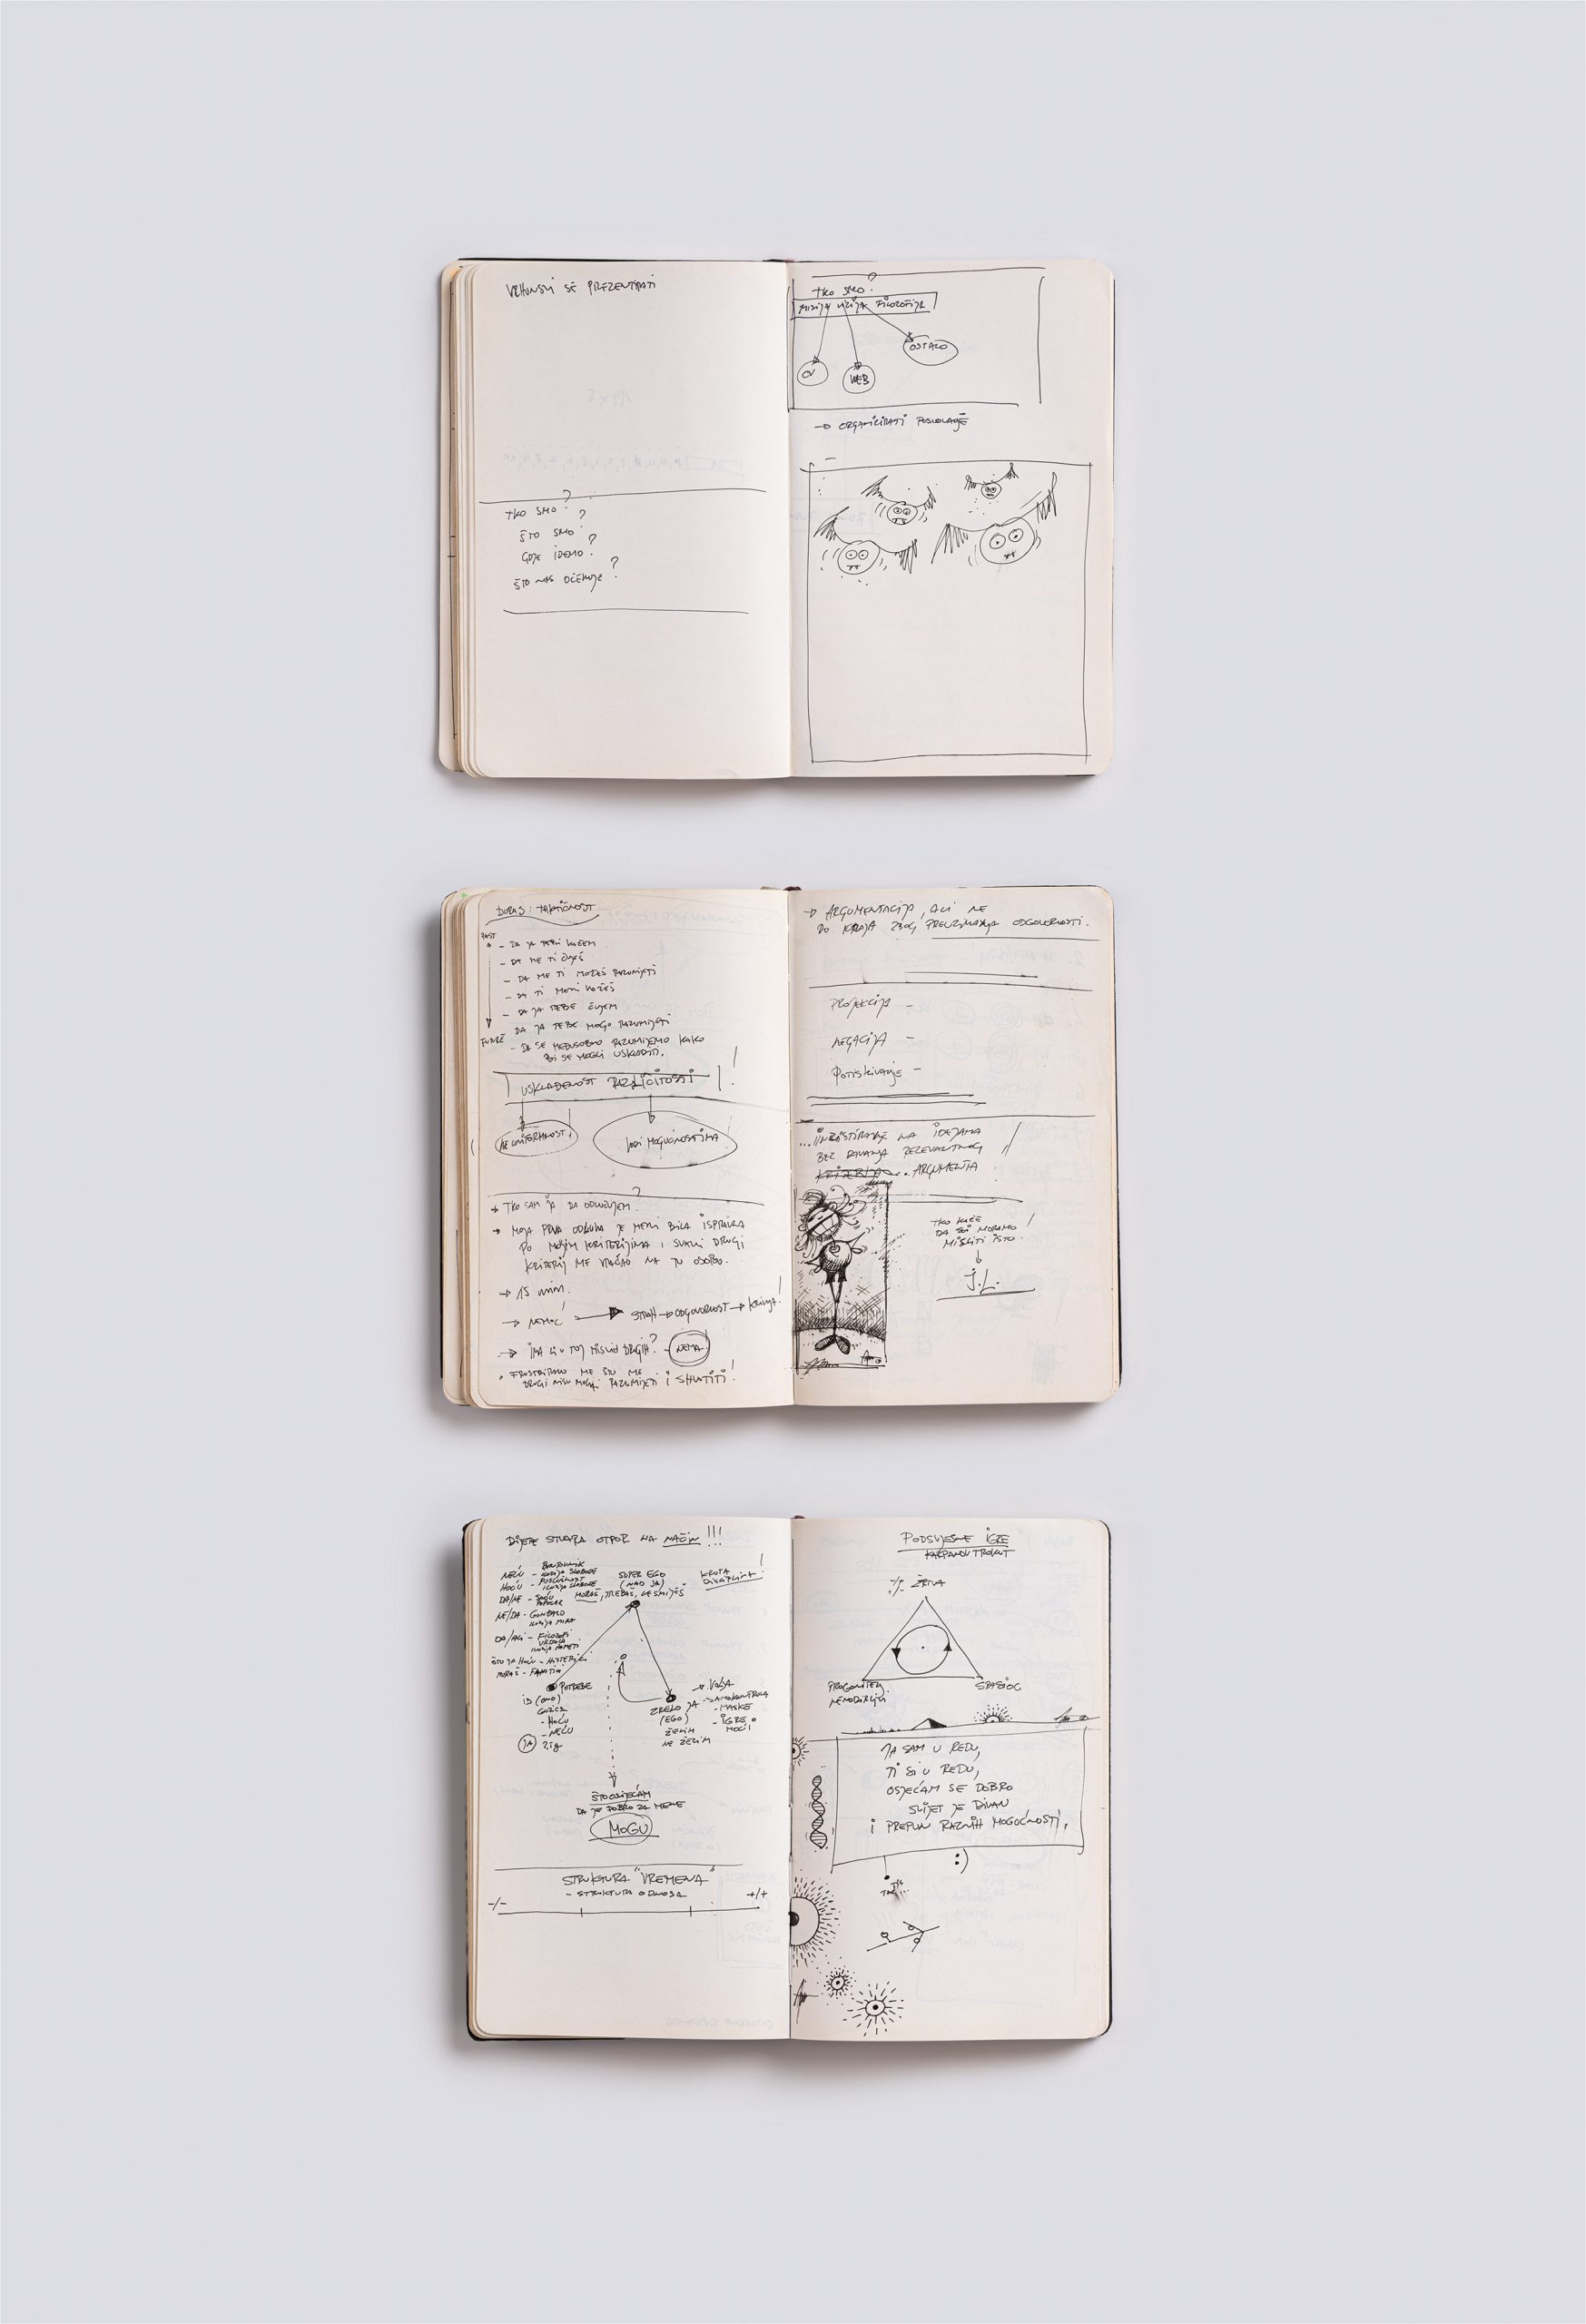 VRHUNSKI SE PREZENTIRATI
TKO SMO?
ŠTO SMO?
GDJE IDEMO?
ŠTO NAS OČEKUJE?
TKO SMO?
MISIJA VIZIJA FILOZOFIJA
CV
WEB
OSTALO
→ ORGANIZIRATI POSLOVANJE
TAKTIČNOST
PAST
- DA JA TEBI KAŽEM
- DA ME TI ČUJEŠ
- DA ME TI MOŽEŠ RAZUMIJETI
- DA TI MENI KAŽEŠ
- DA JA TEBE ČUJEM
- DA JA TEBE MOGU RAZUMIJETI
- DA SE MEĐUSOBNO RAZUMIJEMO KAKO
BI SE MOGLI USKLADITI.
USKLAĐENOST RAZLIČITOSTI!
NE UNIFORMNOST!
VODI MOGUĆNOSTIMA!
→ TKO SAM JA DA ODLUČUJEM?
→ MOJA PRVA ODLUKA JE MENI BILA ISPRAVNA
PO MOJIM KRITERIJIMA I SVAKI DRUGI
KRITERIJ ME VRAĆAO NA TU OSOBO.
→ 15 min.
→ NEMOĆ! → STRAH → ODGOVORNOST → KRIVNJA!
→ IMA LI U TOJ MISLIH DRUGIH? - NEMA!
FRUSTRIRALO ME ŠTO ME
DRUGI NISU MOGLI RAZUMIJETI I SHVATITI!
→ ARGUMENTACIJA, ALI NE
DO KRAJA ZBOG PREUZIMANJA ODGOVORNOSTI.
PROJEKCIJA -
NEGACIJA -
POTISKIVANJE -
...INZISTIRANJE NA IDEJAMA
BEZ DAVANJA RELEVANTNOG
KRITERIJA. ARGUMENTA
TKO KAŽE
DA SVI MORAMO
MISLITI ISTO!
J.L.
DIJETE STVARA OTPOR NA NAČIN!!!
NEĆU - BUNTOVNIK
ILUZIJA SLOBODE
HOĆU - POSLUŠNOST
ILUZIJA SLOBODE
DA/NE -
NE/DA - GUNĐALO
ILUZIJA MIRA
DA/ALI - FILOZOFI
ILUZIJA PAMETI
ŠTO JA HOĆU - HISTERIK
MORAŠ - FANATIK
SUPER EGO
(NAD JA)
MORAŠ, TREBAŠ, NE SMIJEŠ
KRUTA
DISCIPLINA!
POTREBE
ID (ONO)
- HOĆU
- NEĆU
JA
ZRELO JA
(EGO)
ŽELIM
NE ŽELIM
→ VOLJA
- SAMOKONTROLA
- MASKE
- IGRE MOĆI
ŠTO OSJEĆAM
DA JE DOBRO ZA MENE
MOGU
STRUKTURA "VREMENA"
- STRUKTURA ODNOSA
-/-
+/+
PODSVJESNE IGRE
KARPANOV TROKUT
-/- ŽRTVA
PROGONITELJ
SPASIOC
JA SAM U REDU,
TI SI U REDU,
OSJEĆAM SE DOBRO
SVIJET JE DIVAN
I PREPUN RAZNIH MOGUĆNOSTI.
:)